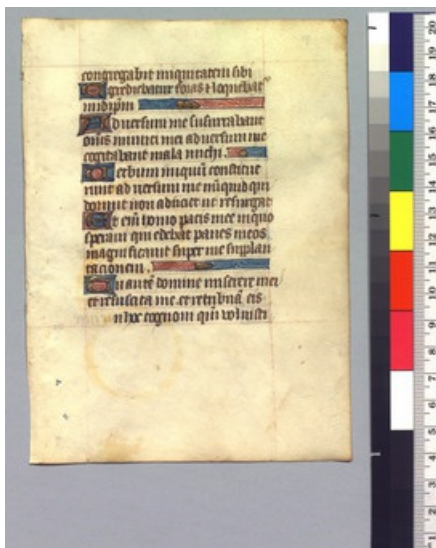 congregabit iniquitatem sibi
Egrediebatur foras et loquebat
in idipm
Adversum me susurrabant
omis inimici mei adversum me
cogitabant mala michi.
Verbum iniquu constitue
runt adversum me nuquid qui
dormit non adiciet ut resurgat
Et em homo pacis mee in quo
speravi qui edebat panes meos
magnificavit super me supplan
tacionem.
Tu aute domine miserere mei
et resuscita me et retribua eis
In hoc cognovi qm voluisti
20
19
18
17
16
15
14
13
12
11
10
9
8
7
6
5
4
3
2
1